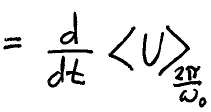 = d/dt ⟨U⟩_{2π/ω₀}